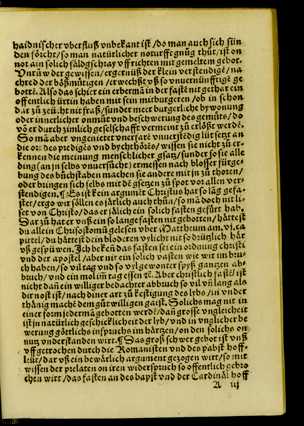 haidnischer vberfluß vnbekant ist / do man auch sich sün
den förcht / so man natürlicher noturfft gnůg thůt / ist on
not ain solich fåldgschray vff richten mit gemeltem gebot.
Vntüw der gewissen / ergernüß der klein verstendigē / na
chred der båßmütigen / erweckt vß so vnuernünfftige ge
bott. Also das schier ein erbermd in der faste mit gethat ein
offentlich würtin haben mit sein mitburgeren / ob in schon
dar zů zeiucht nit frāß / sunder meer burgerliche bywonung
oder innerlicher onmůt vnd beschwerung des gemüts / do
vō er durch zimlich geselschafft vermeint zů erlößt werdē.
So mā aber vngelernt vnerfarē vnuerstēdig lüt setzt an
die or: des prediges vnd bychthörēs / wissen sie nicht zů er
kennen die meinung menschlicher gsatz / sunder so sie alle
ding (an in selbs vnuersůcht) ermessen nach blosser fürge
bung des bůchstaben machen sie andere mit in zů thoren /
oder bringen sich selbs mit dē gsetzen zů spot vor allen ver
stendigen. ¶ Es ist kein argumēt Christus hat so lāg gefa
stet / ergo wir söllen es järlich auch thůn / so mā doch nit li
set von Christo / das er jålich ein solich fasten gefürt hab.
Dar zů hat er vnß ein so lange fasten nit gebotten / hårt ist
vß allein Chrisostomū gelesen vber Mattheum am. vi. ca
pittel / du hårtest dein bloderen volicht nit so düglich hår
vß gespüwen. Ich bekēn das fasten sey ein ordnung christi
vnd der apostel / aber nit ein solich vasten wie wir im bru
ch haben / so vil tag vnd so vil gewonter spyß gantzen ab-
bruch / vnd ein mol im tag essen ꝛc. Aber christlich fast / ist
nicht dañ ein williger bedachter abbruch so vil vñ lang als
dir not ist / nach diner art zů kestigung des lybs / in vnder
thånig mache dem gůtwilligen gaist. Solichs mag nit in
einer form jederman gebotten werdē / dañ grosse vngleicheit
ist in natürlich geschicklicheit der lyb / vnd in vnglicher be
werung görtlichs inspruchs im hårtzen / on den solichs on
nutz vnderstanden wirt. ¶ Das groß schwer gebot ist vns
vff getrochen durch die Romanisten vnd des pabst hoff-
leüt / dar vß ein bewårlich argument gezogen wirt / so mit
wissen der prelaten on iren widerspruch so offentlich gebro
chen wirt / das fasten an des bapst vnd der Cardinål hoff
A iij